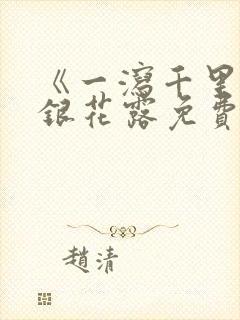 《一瀉千里
銀花露免費
趙清